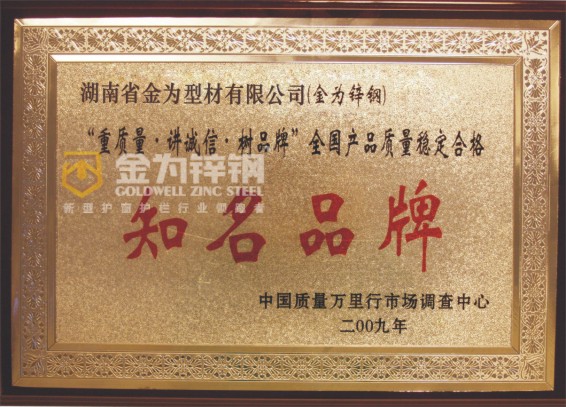 湖南省金为型材有限公司(金为锌钢)
“重质量·讲诚信·树品牌”全国产品质量稳定合格
金为锌钢
GOLDWELL ZINC STEEL
新型护窗护栏行业领跑者
知名品牌
中国质量万里行市场调查中心
二00九年